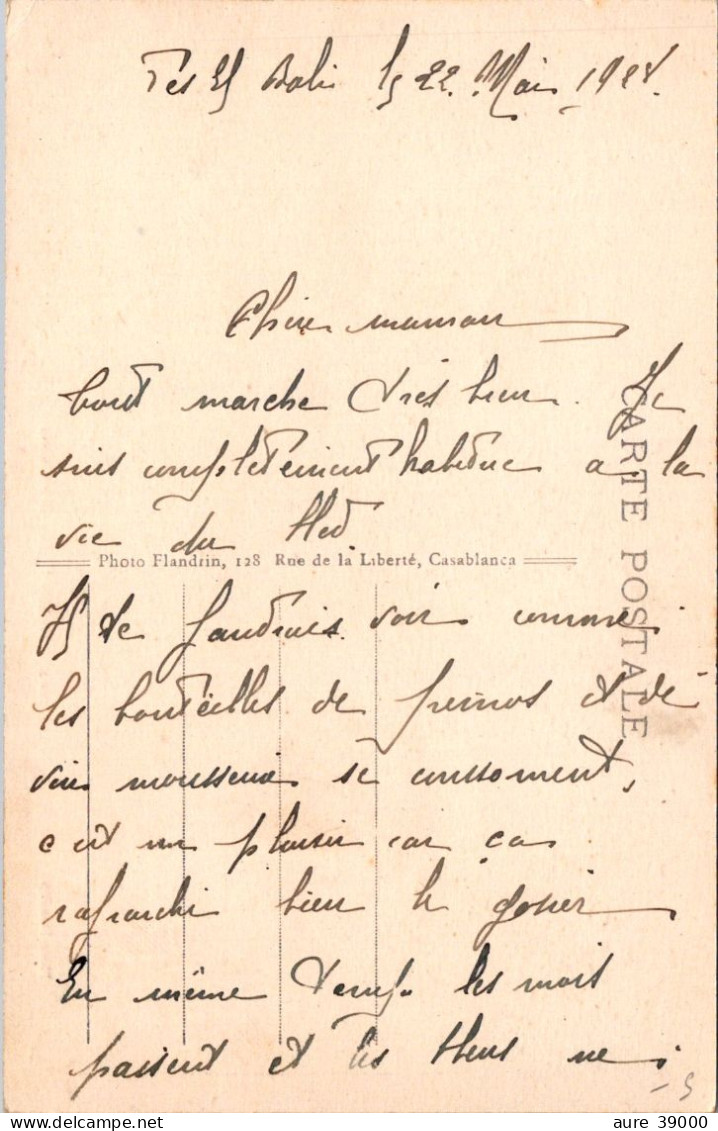 Fes El Bali le 22 Mai 192
Chère maman
tout marche très bien. Je
suis completement habitué a la
vie du bled
Photo Flandrin, 128 Rue de la Liberté, Casablanca
CARTE POSTALE
Il te faudrait voir comme
les bouteilles de et de
vin mousseux se consomment,
c'est un plaisir car ça
rafraichi bien le gosier
En même temps les mois
passent et les ne
aure 39000